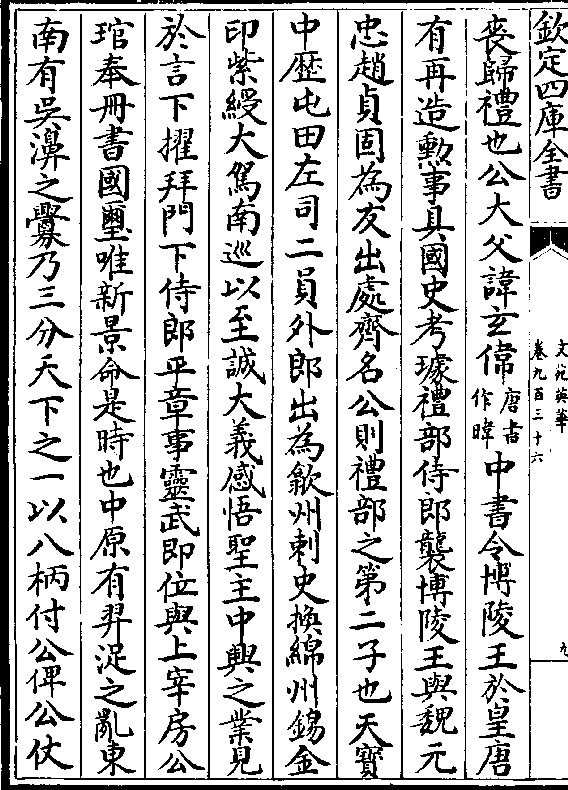 欽定四庫全書
文苑英華
卷九百三十六
九
喪歸禮也公大父諱玄偉唐書作暐中書令博陵王於皇唐
有再造勲事具國史考璩禮部侍郎襲博陵王與魏元
忠趙貞固為友出處齊名公則禮部之第二子也天寶
中歴屯田左司二員外郎出為歙州刺史換綿州錫金
印紫綬大駕南巡以至誠大義感悟聖主中興之業見
於言下擢拜門下侍郎平章事靈武即位與上宰房公
琯奉冊書國璽唯新景命是時也中原有羿浞之亂東
南有吳濞之釁乃三分天下之一以八柄付公俾公仗